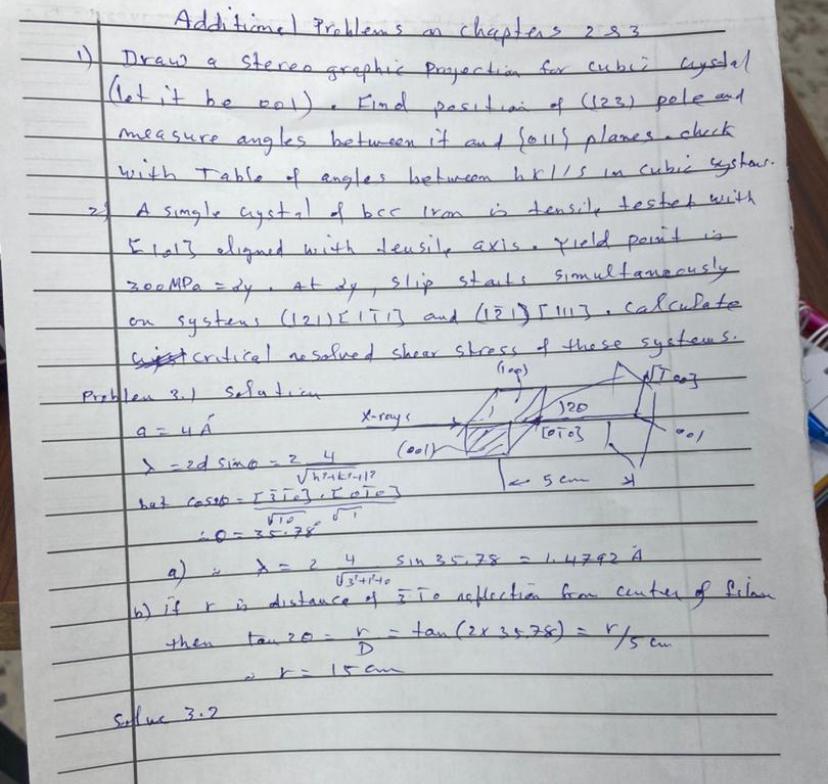 Additional Problems on chapters 2 & 3
1) Draw a stereographic Projection for cubic crystal
(let it be 001). Find position of (123) pole and
measure angles between it and {011} planes. check
with Table of angles between hkl's in cubic system.
2) A single crystal of bcc iron is tensile tested with
[101] aligned with tensile axis. Yield point is
300 MPa = σy. At σy, slip starts simultaneously
on systems (121)[11̄1] and (12̄1)[111]. Calculate
critical resolved shear stress of these systems.
Problem 3.1 Solution
(100)
[1̄00]
a = 4 Å
X-rays
2θ
(001)
[01̄0]
001
λ = 2d sinθ = 2 4/√h²+k²+l²
5 cm
but = [3̄1̄0].[01̄0] / √10 √1
∴ θ = 35.78°
a) ∴ λ = 2 4/√3²+1²+0 sin 35.78 = 1.4792 Å
b) if r is distance of 3̄1̄0 reflection from center of film
then tan 2θ = r/D = tan(2x35.78) = r/5 cm
∴ r = 15 cm
Solve 3.2